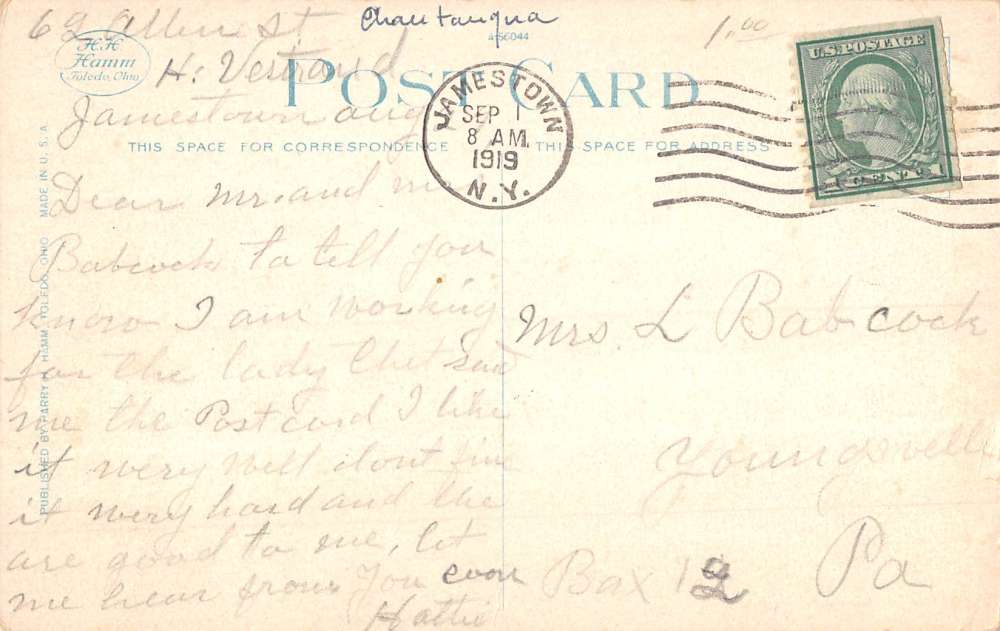 Chautauqua
62 Allen St
1.00
A-56044
H.H
Hamm
Toledo, Ohio
H. Vestrand
POST CARD
Jamestown aug
JAMESTOWN
SEP 1
8 AM.
1919
N.Y.
U.S. POSTAGE
1 CENT
THIS SPACE FOR CORRESPONDENCE
THIS SPACE FOR ADDRESS
PUBLISHED BY HARRY H. HAMM, TOLEDO, OHIO MADE IN U. S. A
Dear Mr. and
Babcock to tell you
know I am working
for the lady thet
me the Post card I like
it wery well dont fine
it wery hard and the
are good to me, let
me hear from you soon
Hattie
Mrs. L Babcock
Youngswille
Pa
Bax 12